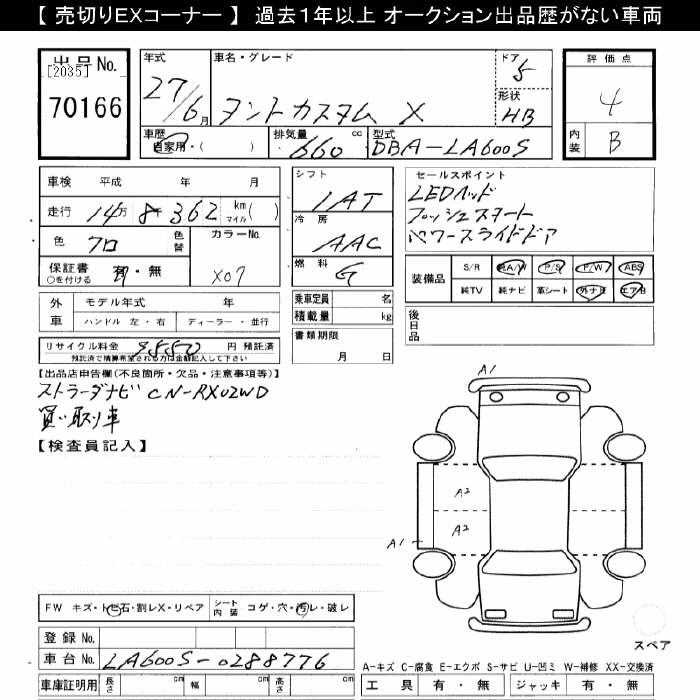 【 売切りEXコーナー 】 過去１年以上 オークション出品歴がない車両
出品No.
[2035]
70166
年式
27/6月
車名・グレード
タントカスタム X
ドア
5
形状
HB
車歴
自家用・( )
排気量
660 cc
型式
DBA-LA600S
評価点
4
内装
B
車検 平成 年 月
走行 14万 8千 362 km マイル ( )
色 クロ
色替
カラーNo.
X07
保証書 有・無
○を付ける
外車
モデル年式 年
ハンドル 左・右 ディーラー・並行
リサイクル料金 9850 円 預託済
預託済で積算希望される方は金額記入して下さい
シフト
IAT
冷房
AAC
燃料
G
乗車定員 名
積載量 kg
書類期限
月 日
セールスポイント
LEDヘッド
プッシュスタート
パワースライドドア
装備品
S/R 純A/W P/S P/W ABS
純TV 純ナビ 革シート 外ナビ エアB
後日品
【出品店申告欄(不良箇所・欠品・注意事項等)】
ストラーダナビ CN-RX02WD
買い取り車
【検査員記入】
A1
A2
A2
A1
FW キズ・トビ石・割レX・リペア
シート内装 コゲ・穴・汚レ・破レ
登録No.
車台No. LA600S-0288776
車庫証明用 長さ cm 幅 cm 高さ cm
スペア
A-キズ C-腐食 E-エクボ S-サビ U-凹ミ W-補修 XX-交換済
工具 有・無 ジャッキ 有・無